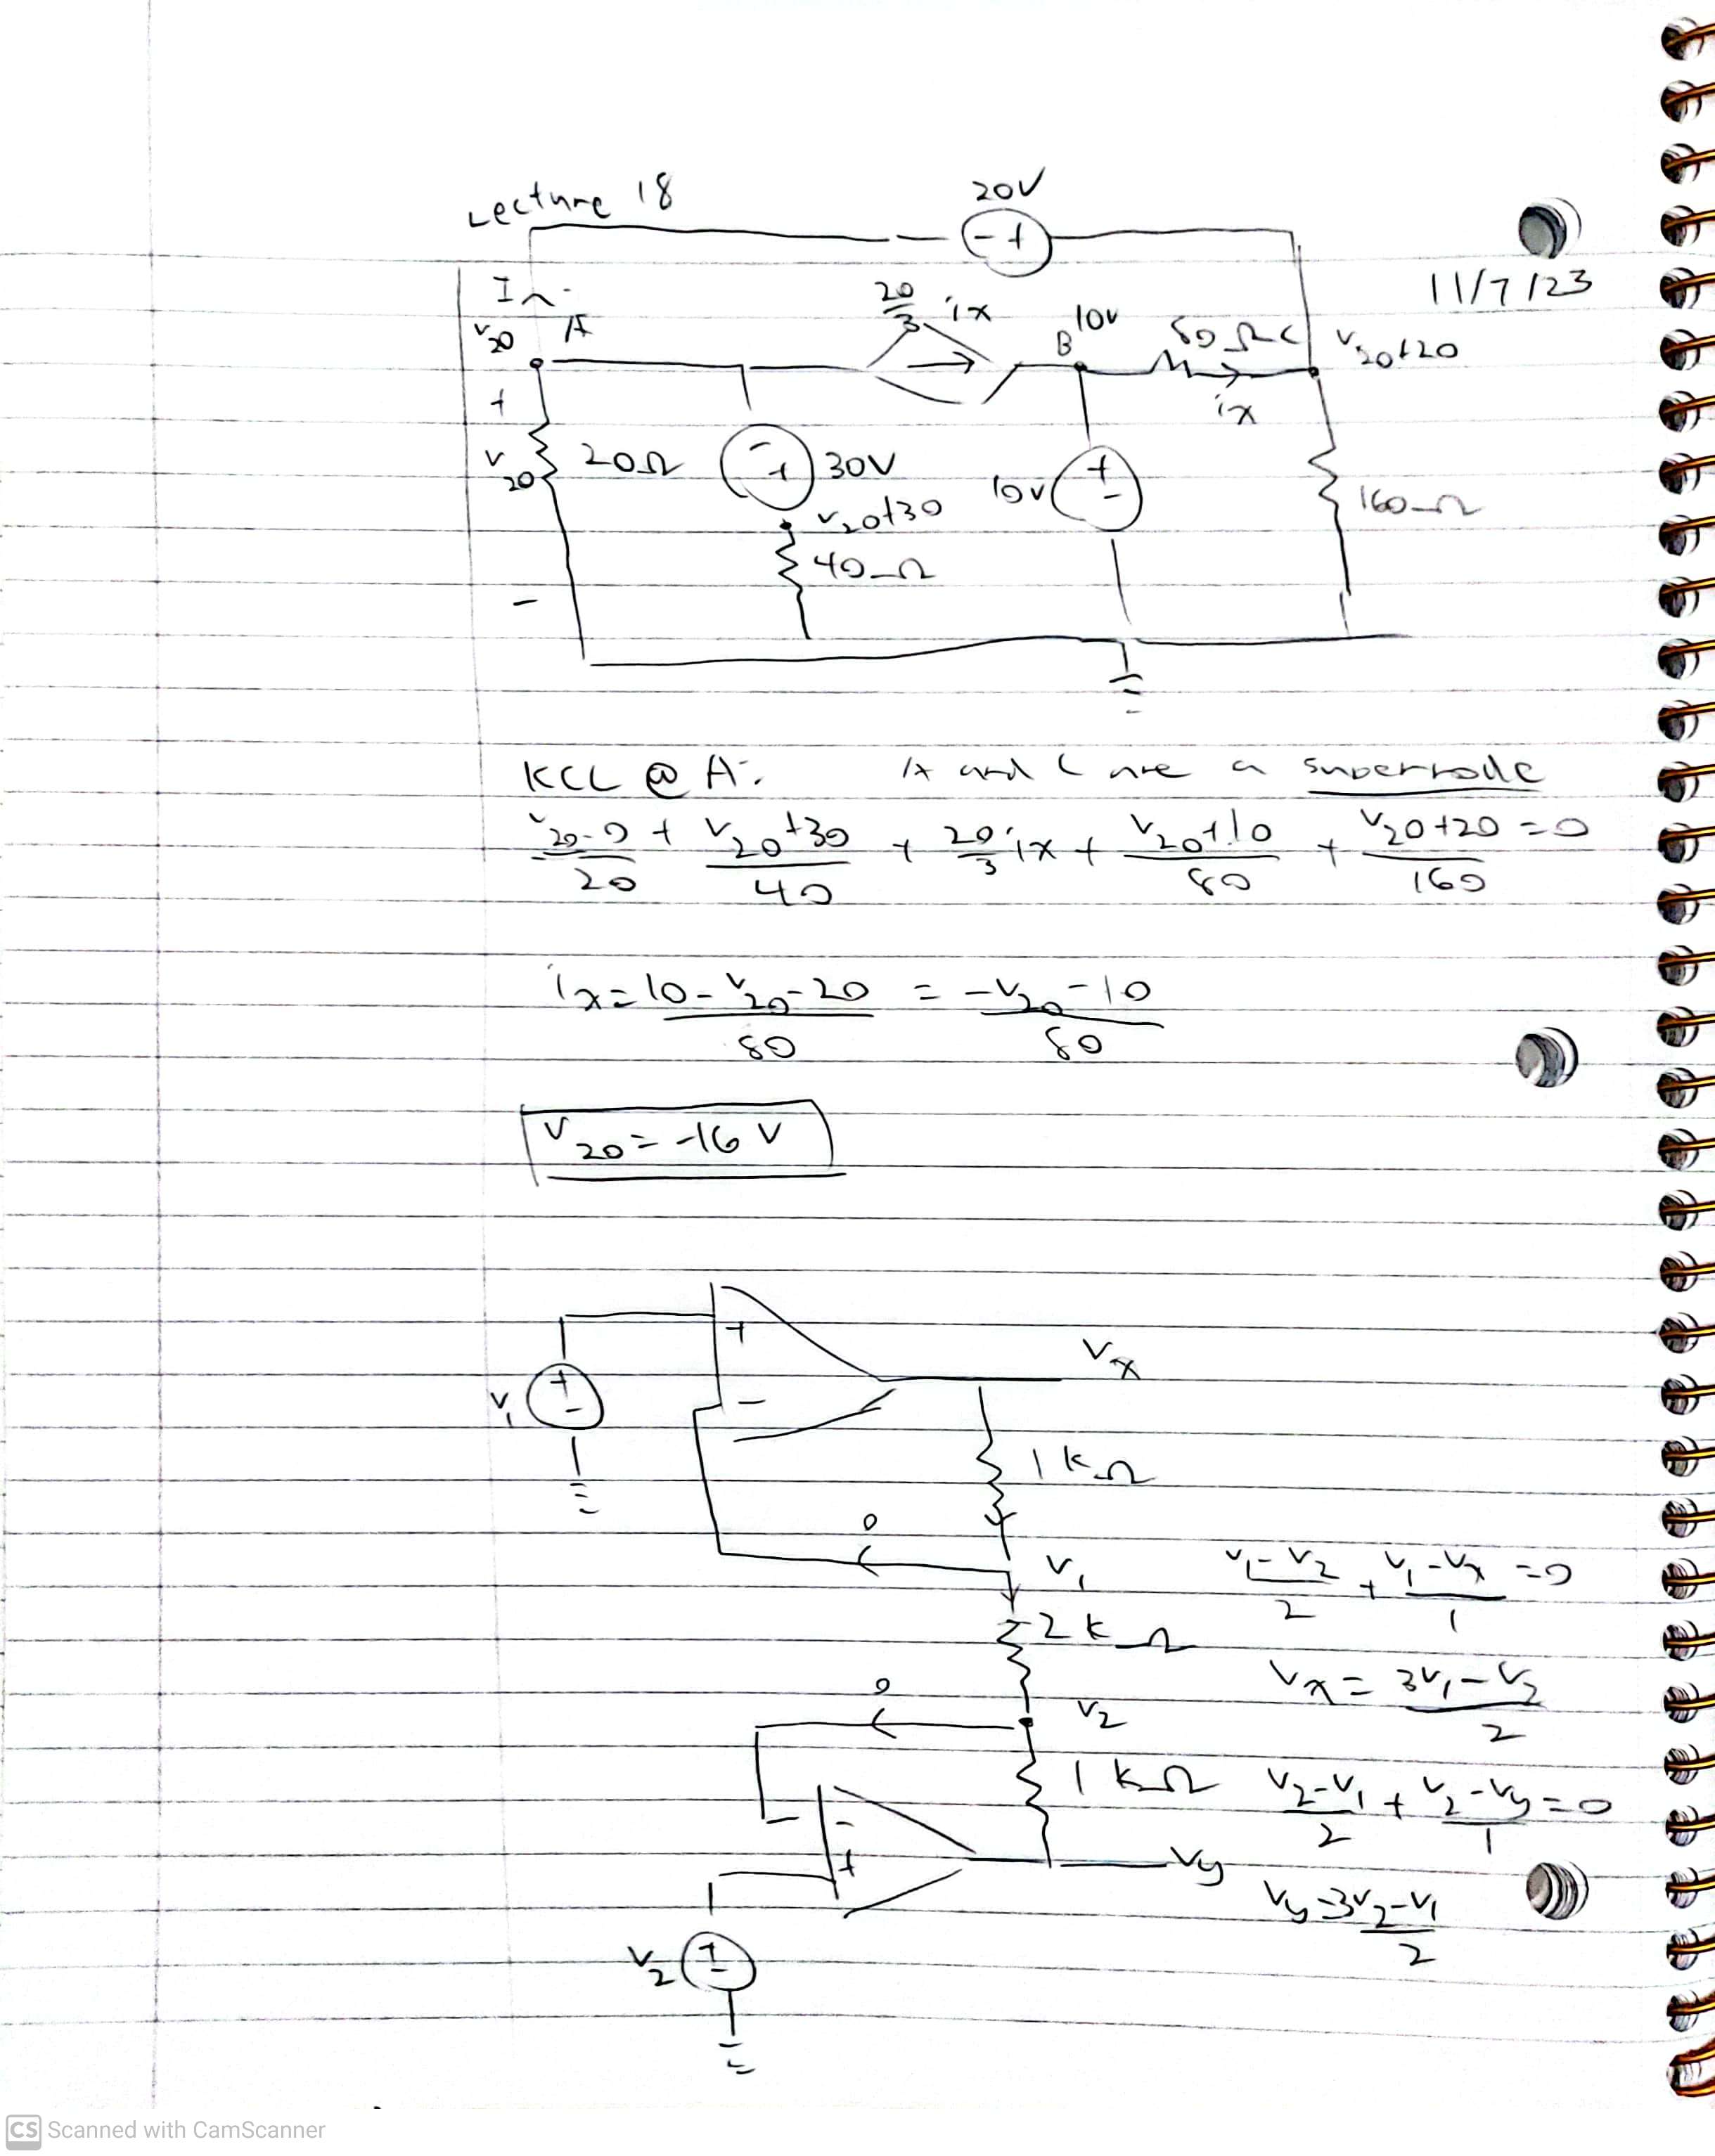 Lecture 18
20V
- +
11/7/23
20/3 ix
V20 A
B 10V 80Ω C V20+20
ix
+
V20 20Ω
- +
30V
10V
+ -
160Ω
V20+30
40Ω
-
KCL @ A: A and C are a supernode
V20-0/20 + V20+30/40 + 20/3 ix + V20+10/80 + V20+20/160 = 0
ix = 10-V20-20/80 = -V20-10/80
V20 = -16 V
+
Vx
V1
+ -
-
1kΩ
0
V1
V1-V2/2 + V1-Vx/1 = 0
2kΩ
Vx = 3V1-V2/2
0
V2
1kΩ
V2-V1/2 + V2-Vy/1 = 0
-
+
Vy
Vy=3V2-V1/2
V2
+ -
CS Scanned with CamScanner